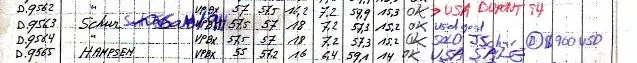 D.9562 " VPBX 57 57.5 16,2 7,2 59,9 15,3 OK → USA DUPONT 54
D.9563 Schur VPBX 57,5 57 18 7,2 57,3 15,2 OK
D.9564 " VPBX 57,5 57 18 7,2 57,3 15,2 OK SOLD JSchur $900 USD
D.9565 HAMPSEN VPBX 55 57,2 16 6,4 59,1 14 OK USA SALE